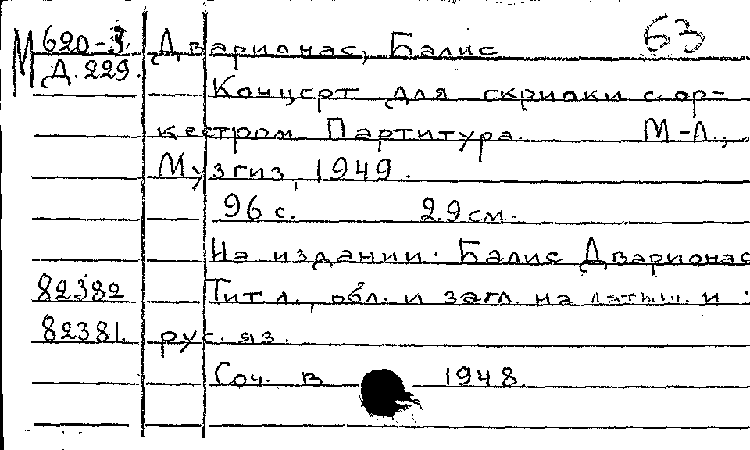 М 620-3. Дварионас, Балис 63
Д. 229.
Концерт для скрипки с ор-
кестром. Партитура. М-Л.,
Музгиз, 1949.
96 с. 29 см.
На издании: Балис Дварионас
82382 Тит. л., обл. и загл. на латыш. и
82381. рус. яз.
Соч. в 1948.